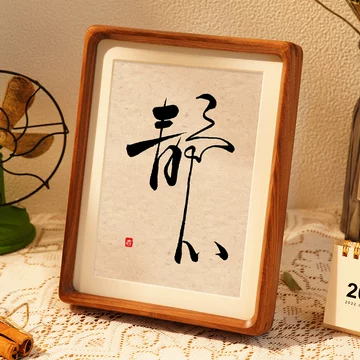 静心
20